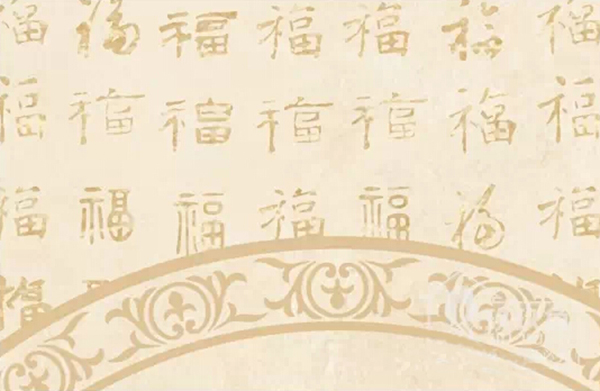 福福福福福福福
福福福福福福福
福福福福福福福
福